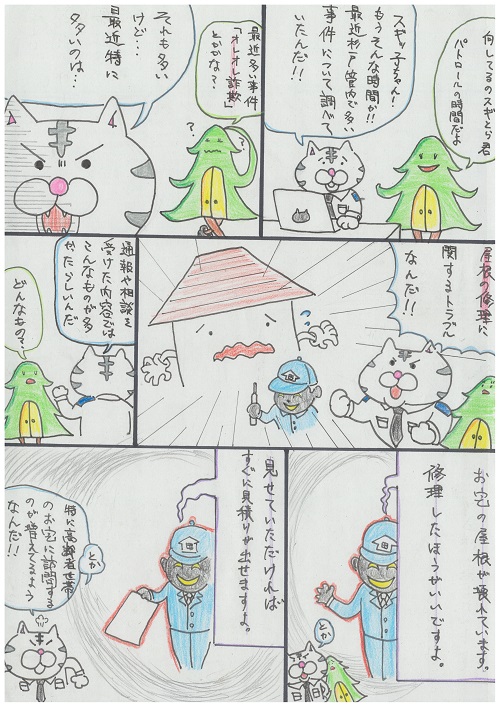 何してるのスギとら君
パトロールの時間だよ
スギッ子ちゃん!
もうそんな時間か!!
最近杉戸管内で多い
事件について調べて
いたんだ!!
最近多い事件
「オレオレ詐欺」
とかかな?
?
?
それも多い
けど…
最近特に
多いのは…
屋根の修理に
関するトラブル
なんだ!!
通報や相談を
受けた内容では
こんなものが多
かたらしいんだ
どんなもの?
お宅の屋根が壊れています。
修理したほうがいいですよ。
とか
見せていただければ
すぐに見積りが出せますよ。
とか
特に高齢者世帯
のお宅に訪問する
のが増えてるよう
なんだ!!